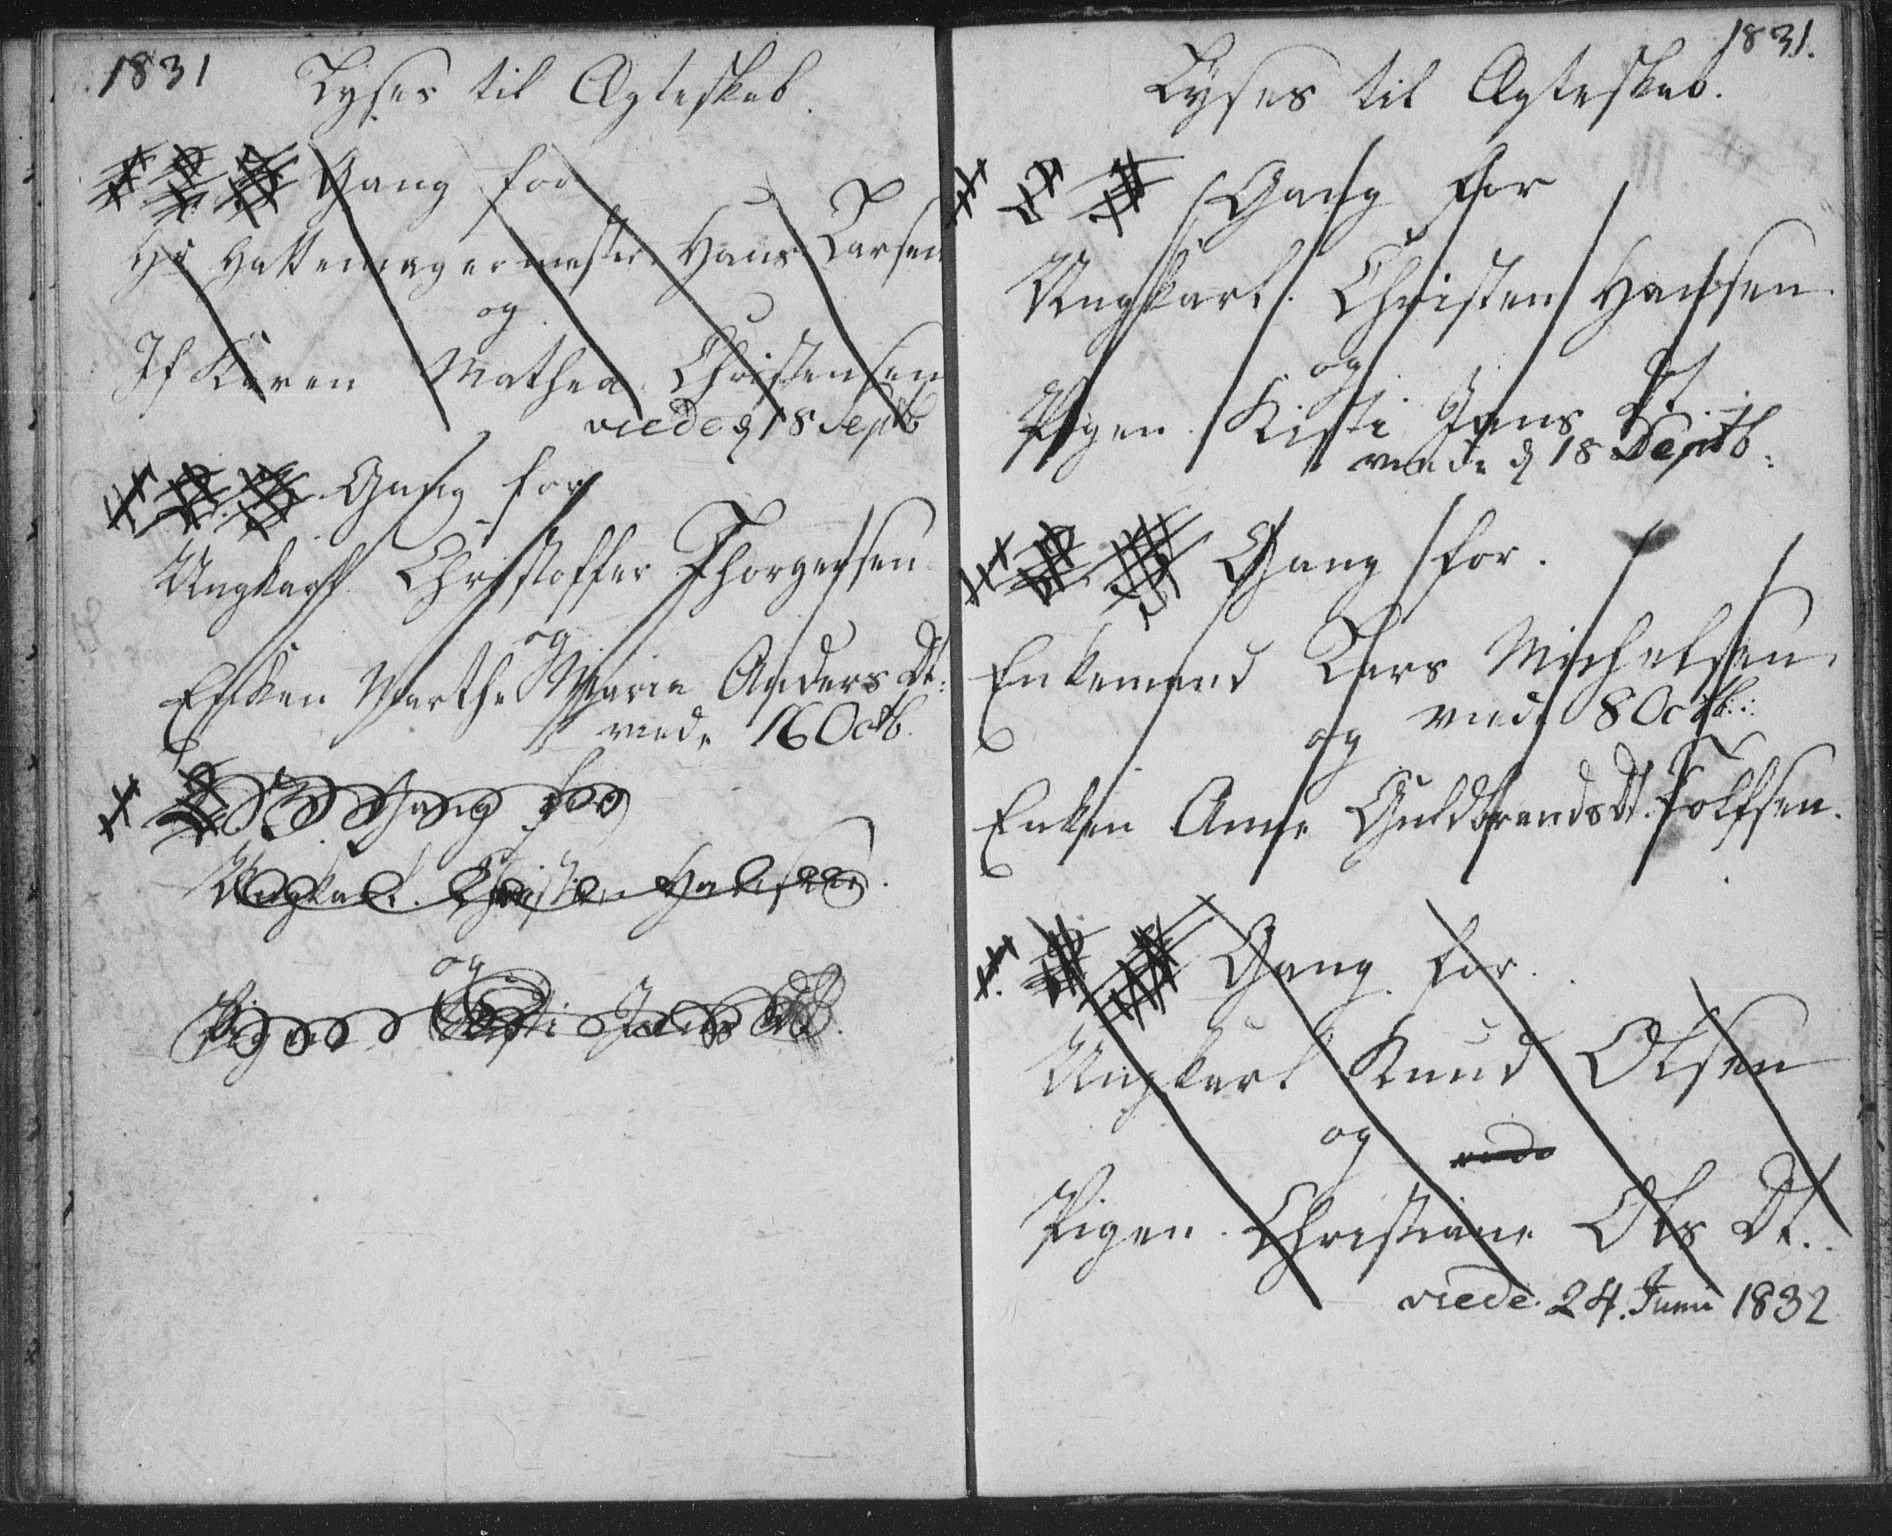 1831
Lyses til Ægteskab.
Gang for
Hr Hattemagermester Hans Larsen
og
Jf Karen Mathea Christensen
viede d 18 Septb
Gang for
Ungkarl Christoffer Thorgersen
og
Enken Marthe Maria Anders Dt:
viede 16 Octb.
Gang for
Ungkarl. Christen Hansen.
og
Pigen Kisti Jens Dt.
1831.
Lyses til Ægteskab.
Gang for
Ungkarl. Christen Hansen.
og
Pigen Kisti Jens Dt.
viede d 18 Septb:
Gang for.
Enkemand Lars Michelsen
viede 8 Octb:
og
Enken Anne Guldbrandsdt. Tolfsen.
Gang for.
Ungkarl Knud Olsen
og viede
Pigen Christiane Ols Dt.
viede 24. Juni 1832